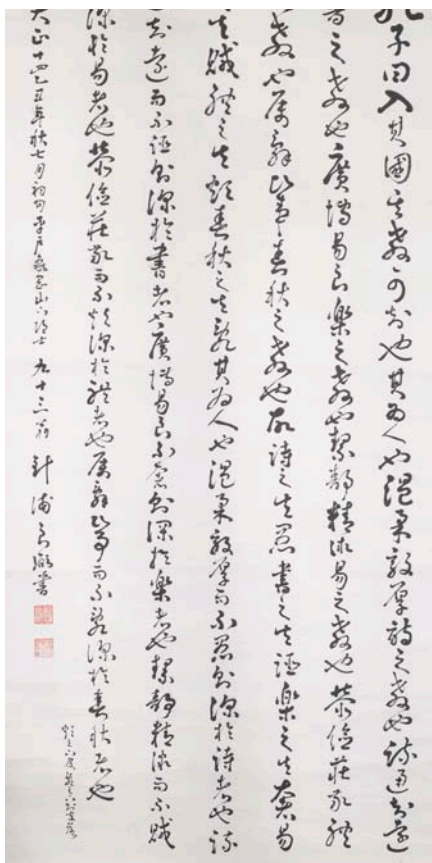 孔子曰入其國其教可知也其為人也温柔敦厚詩之教也疏通知遠
書之教也廣博易良樂之教也絜静精微易之教也恭儉莊敬禮
之教也属辞比事春秋之教也故詩之失愚書之失誣樂之失奢易
之失賊禮之失煩春秋之失亂其為人也温柔敦厚而不愚則深於詩者也疏
通知遠而不誣則深於書者也廣博易良而不奢則深於樂者也絜静精微而不賊
深於易者也恭儉莊敬而不煩深於禮者也属辞比事而不亂深於春秋者也
大正十四乙丑年秋七月初旬平戸山九十三翁針浦書